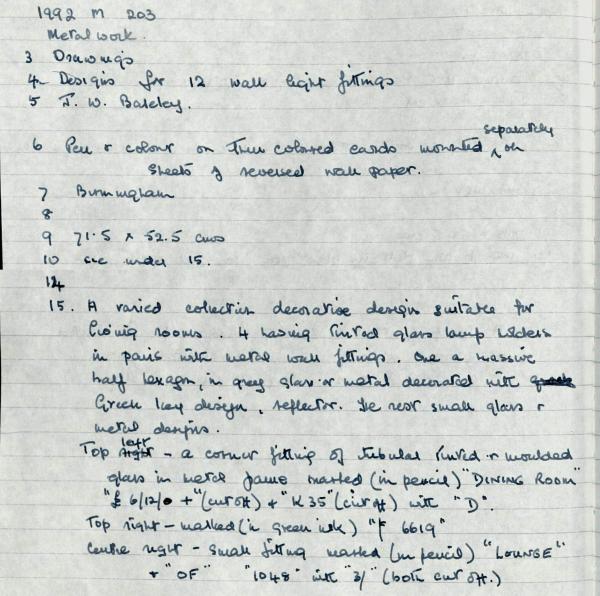 1992 M 203
Metalwork.
3 Drawings
4 Designs for 12 wall light fittings
5 J. W. Barkley.
separately
6 Pen & colour on thin coloured cards mounted ^ on
sheets of reversed wall paper.
7 Birmingham
8
9 71.5 x 52.5 cms
10 see under 15.
12
15. A varied collection decorative designs suitable for
living rooms. 4 having tinted glass lamp holders
in pairs with metal wall fittings. One a massive
half hexagon, in grey glass or metal decorated with
Greek key design, reflector. The rest small glass &
metal designs.
left
Top right - a corner fitting of tubular tinted & moulded
glass in metal frame marked (in pencil) "DINING ROOM"
"£ 6/12/0 + "(cut off) + "K 35" (cut off) with "D".
Top right - marked (in green ink) "F 6619"
Centre right - small fitting marked (in pencil) "LOUNGE"
+ "OF" "1048" with "3/" (both cut off.)